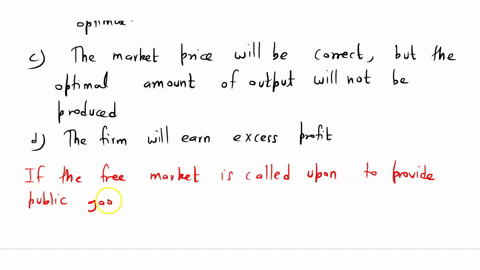 optima
c) The market price will be correct, but the
optimal amount of output will not be
produced
d) The firm will earn excess profit
If the free market is called upon to provide
public goo